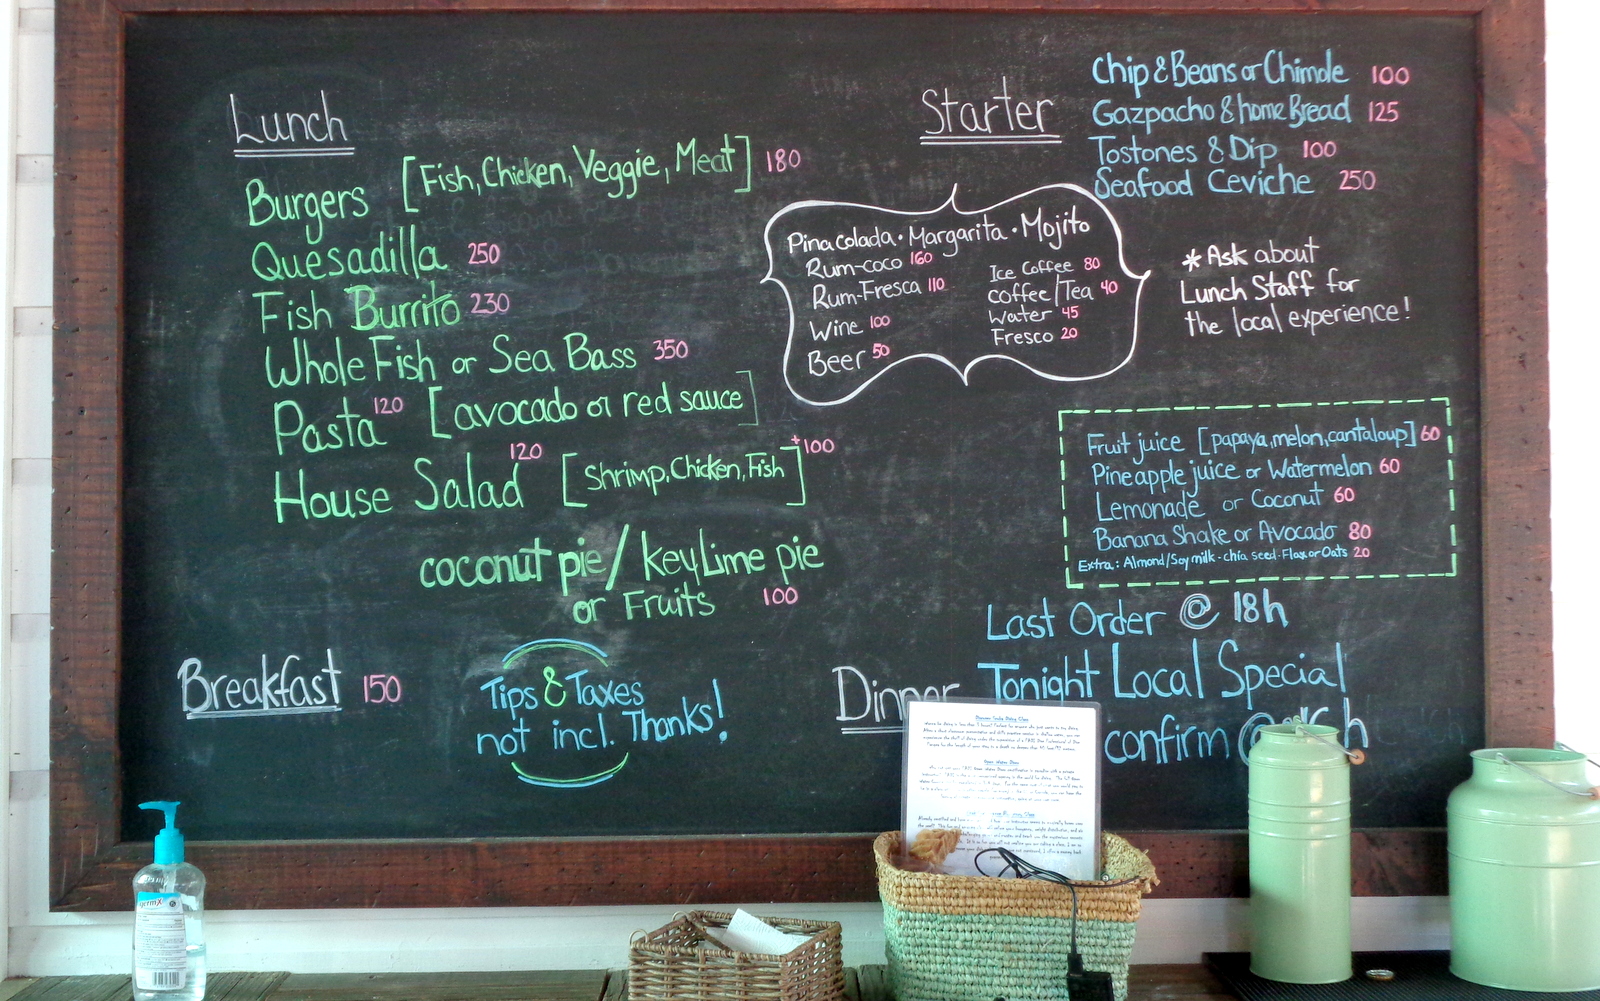 Lunch
Burgers [Fish, Chicken, Veggie, Meat] 180
Quesadilla 250
Fish Burrito 230
Whole Fish or Sea Bass 350
Pasta 120 [avocado or red sauce]
House Salad 120 [Shrimp, Chicken, Fish] +100
coconut pie / Key Lime pie
or Fruits 100
Breakfast 150
Tips & Taxes
not incl. Thanks!
Starter
Chip & Beans or Chimole 100
Gazpacho & home Bread 125
Tostones & Dip 100
Seafood Ceviche 250
Pina colada · Margarita · Mojito
Rum-coco 160
Rum-Fresca 110
Wine 100
Beer 50
Ice Coffee 80
coffee/Tea 40
Water 45
Fresco 20
* Ask about
Lunch Staff for
the local experience!
Fruit juice [papaya, melon, cantaloup] 60
Pineapple juice or Watermelon 60
Lemonade or Coconut 60
Banana Shake or Avocado 80
Extra: Almond/Soy milk - chia seed - Flax or Oats 20
Last Order @ 18h
Dinner Tonight Local Special
confirm @ h
germX